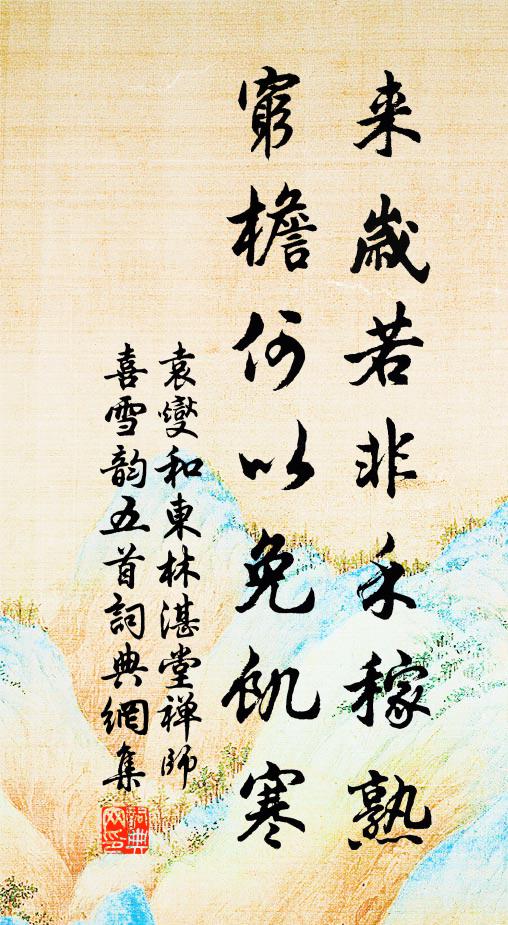 来歲若非禾稼熟
窮檐何以免飢寒
袁燮和東林湛堂禅师
喜雪韵五首詞典網集
詞典
网印